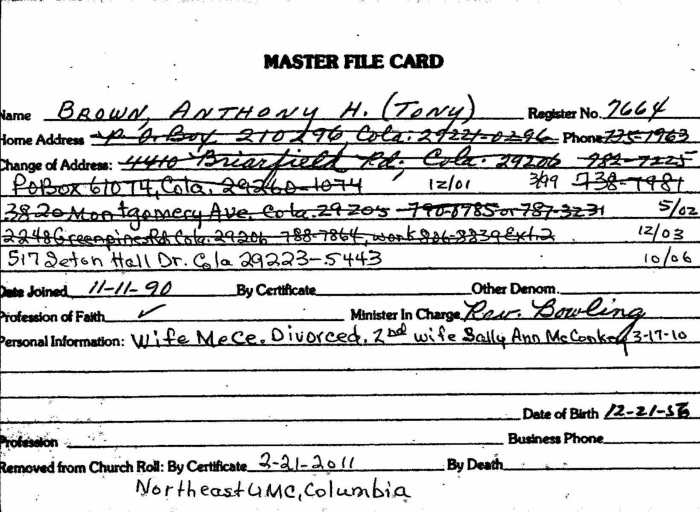 MASTER FILE CARD
Name BROWN, ANTHONY H. (TONY) Register No. 7664
Home Address P.O. Box 210296 Cola. 29221-0296 Phone 735-1963
Change of Address: 4410 Briarfield Rd; Cola. 29206 782-7225
POBox 61074, Cola. 29260-1074 12/01 3/99 738-7981
3820 Montgomery Ave. Cola. 29205 790-8985 or 787-3231 5/02
2248 Greenpines Rd Cola. 29206 788-7864, work 806-8839 Ext.2 12/03
517 Seton Hall Dr. Cola 29223-5443 10/06
Date Joined 11-11-90 By Certificate Other Denom.
Profession of Faith ✓ Minister In Charge Rev. Bowling
Personal Information: Wife MeCe. Divorced. 2nd wife Sally Ann McConkey 3-17-10
Date of Birth 12-21-56
Profession Business Phone
Removed from Church Roll: By Certificate 2-21-2011 By Death
Northeast UMC, Columbia